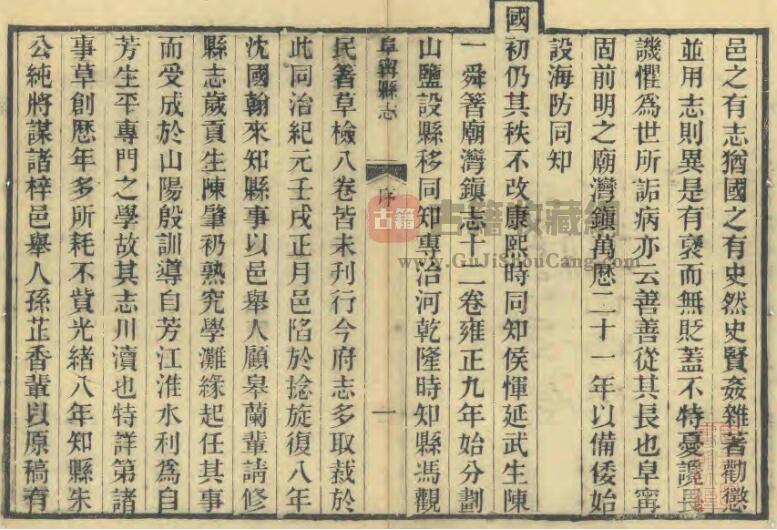 邑之有志猶國之有史然史賢姦雜著勸懲
並用志則異是有褒而無貶蓋不特憂讒畏
譏懼爲世所詬病亦云善善從其長也阜甯
固前明之廟灣鎮萬歷二十一年以備倭始
設海防同知
國初仍其秩不改康熙時同知侯惲延武生陳
一舜箸廟灣鎮志十二卷雍正九年始分劃
山鹽設縣移同知專治河乾隆時知縣馮觀
阜甯縣志
序
一
民箸草檢八卷皆未刊行今府志多取裁於
此同治紀元壬戌正月邑陷於捻旋復八年
沈國翰來知縣事以邑舉人顧皋蘭輩請修
縣志歲貢生陳肇礽熟究學灘緣起任其事
而受成於山陽殷訓導自芳江淮水利爲自
芳生平專門之學故其志川瀆也特詳第諸
事草創歷年多所耗不貲光緒八年知縣朱
公純將謀諸梓邑舉人孫芷香輩以原稿有
古籍
古籍收藏網
www.GuJiShouCang.com